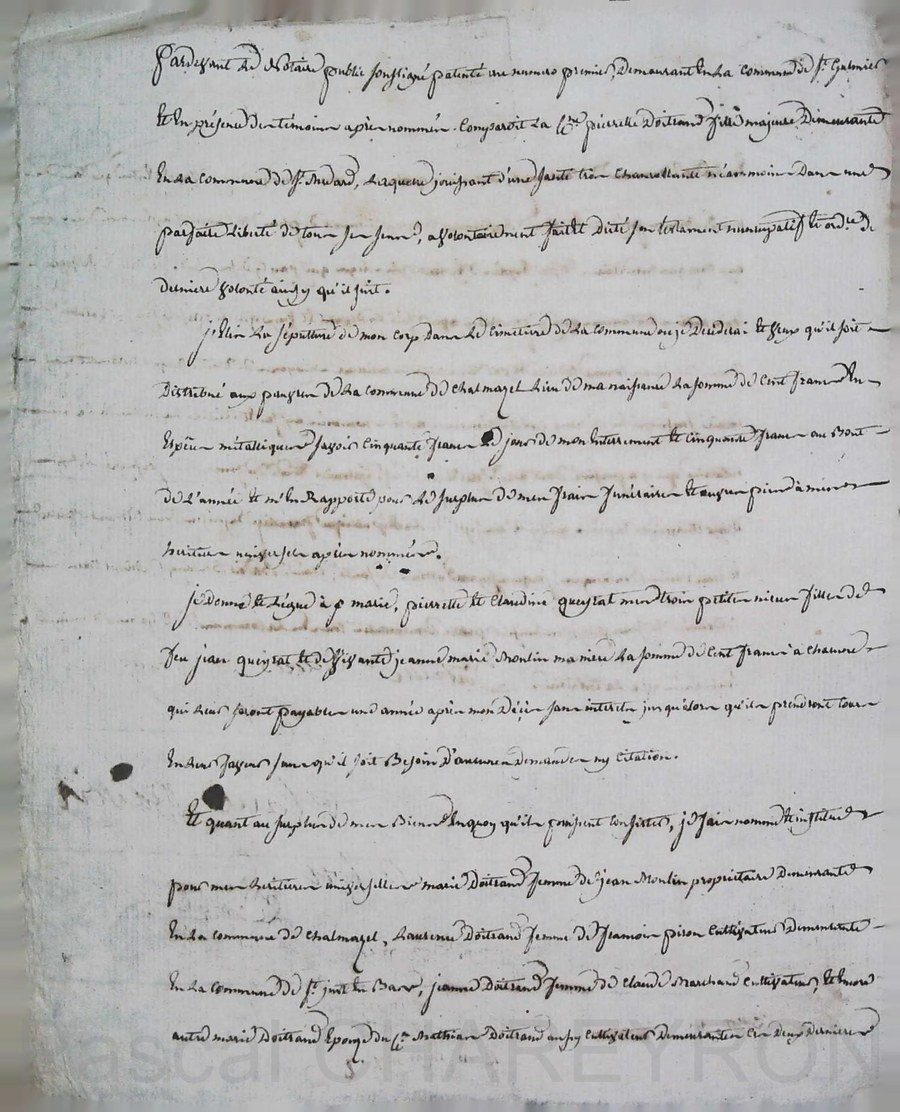 Pardevant le Notaire public soussigné patenté au numero premier, Demeurant En La Commune de St. Galmier
Et En présence des témoins après nommés. Comparoit La Cne. pierrette Doitrand fille majeure Demeurante
En La Commune de St. Medard, Laquelle jouissant d'une santé très chancellante néanmoins Dans une
parfaite Liberté de tous ses sens, a volontairement fait et Dicté son testament nuncupatif et ord.re de
derniere volonté ainsy qu'il suit.
j'Elis La sépulture de mon corps Dans Le Cimetiere de La commune ou je Decederai Et veux qu'il soit
Distribué aux pauvres de La commune de Chalmazel Lieu de ma naissance La somme de Cent francs En
Espèces métalliques savoir Cinquante francs Le jour de mon Enterrement Et Cinquante francs au Bout
de L'année Et m'En Rapporte pour Le surplus de mes frais funéraires Et œuvres pies à mes
heritiers universels après nommés.
je Donne Et Lègue à marie, pierrette Et Claudine queyrat mes trois petites nieces filles de
feu jean queyrat Et de vivante jeanne marie Moulin ma niece La somme de Cent francs à chacune
qui Leurs seront payables une année après mon Décès sans interets jusqu'alors qu'ils prendront Cours
En Leurs faveurs sans qu'il soit Besoin D'aucunes Demandes ny Citation.
Et quant au surplus de mes Biens En quoy qu'ils puissent Consister, je fais nomme Et institue
pour mes heritieres universelles marie Doitrand femme de jean Moulin propriétaire Demeurante
En La commune de Chalmazel, Laurence Doitrand femme de piron Cultivateur Demeurante
En La Commune de St. just En Bas, jeanne Doitrand femme de Claude Marchand Cultivateur, Et Encore
autre marie Doitrand Epouze du Cn. Mathieu Doitrand aussy Cultivateur Demeurantes Ces Deux Dernieres
Pascal CHAREYRON